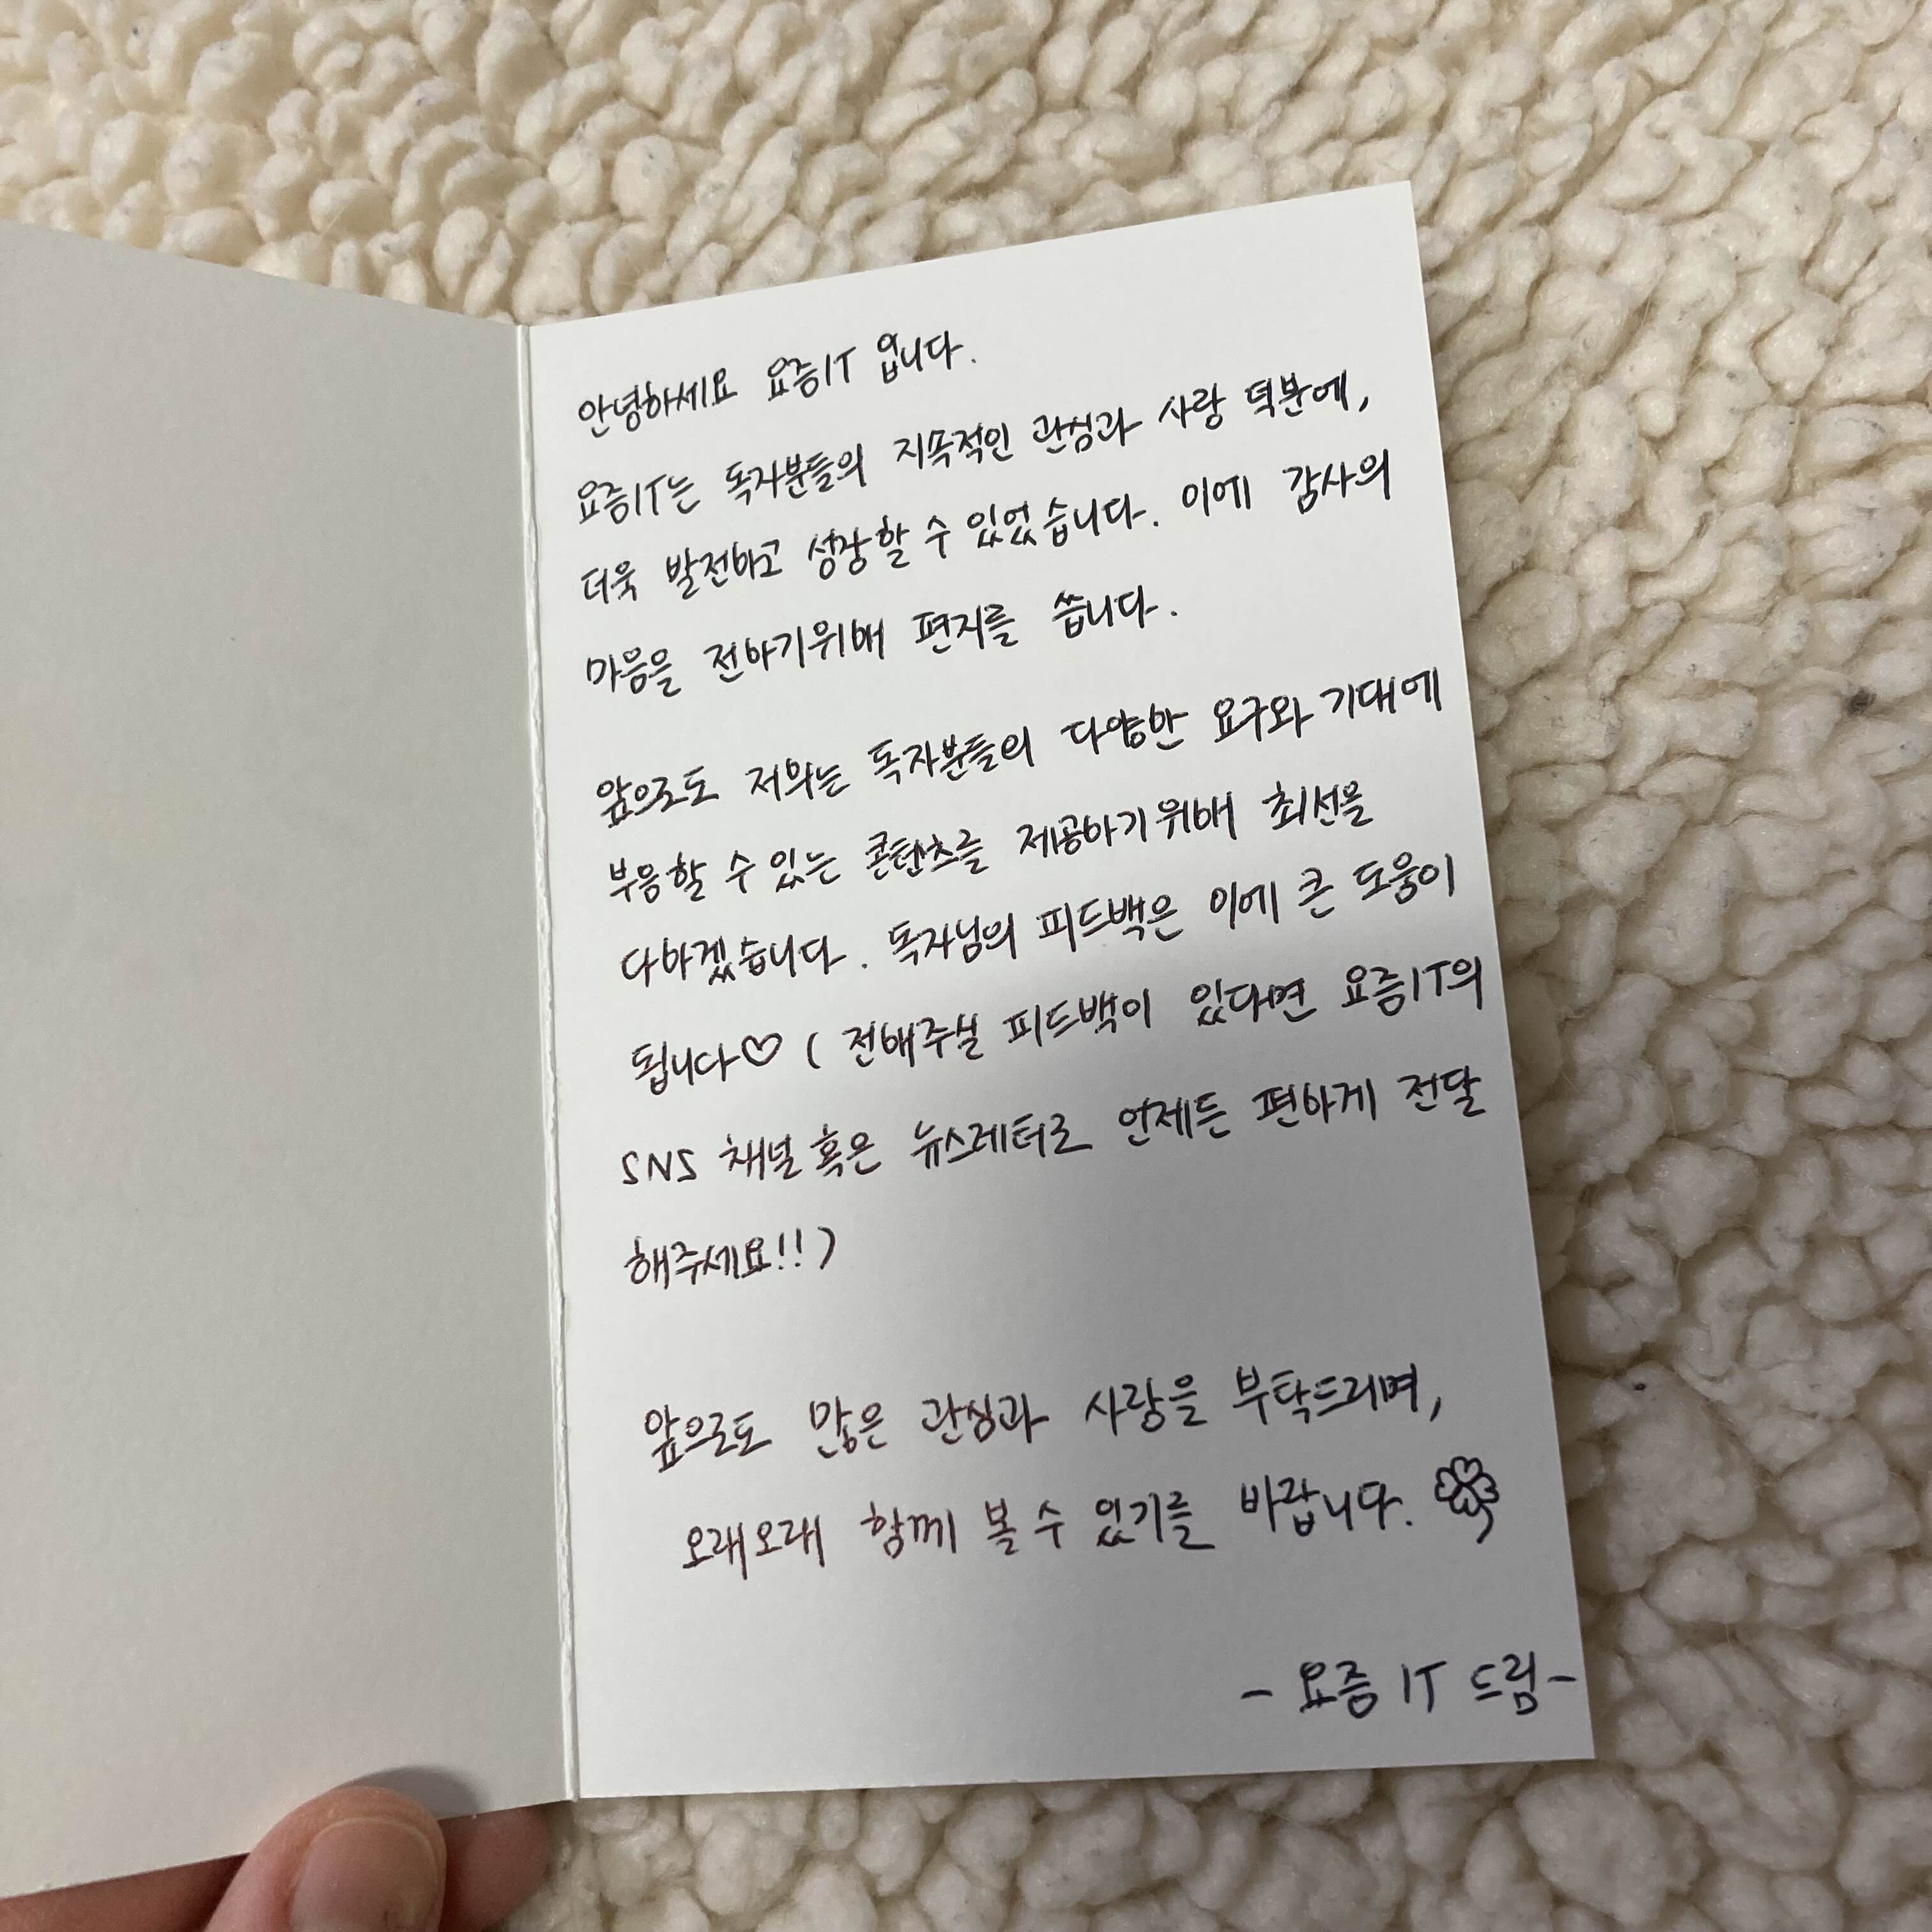 안녕하세요 요즘IT 입니다.
요즘IT는 독자분들의 지속적인 관심과 사랑 덕분에,
더욱 발전하고 성장할 수 있었습니다. 이에 감사의
마음을 전하기위해 편지를 씁니다.
앞으로도 저희는 독자분들의 다양한 요구와 기대에
부응할 수 있는 콘텐츠를 제공하기위해 최선을
다하겠습니다. 독자님의 피드백은 이에 큰 도움이
됩니다♡ ( 전해주실 피드백이 있다면 요즘IT의
SNS 채널 혹은 뉴스레터로 언제든 편하게 전달
해주세요!!)
앞으로도 많은 관심과 사랑을 부탁드리며,
오래오래 함께 볼 수 있기를 바랍니다.
- 요즘 IT 드림-